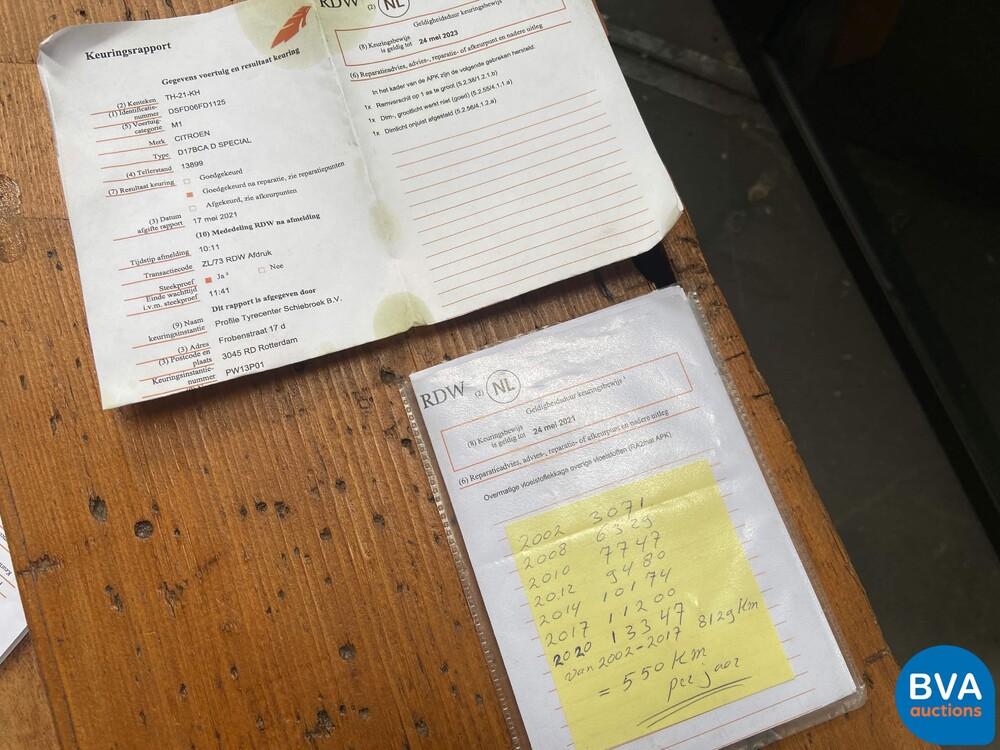 Keuringsrapport
Gegevens voertuig en resultaat keuring
(2) Kenteken TH-21-KH
(1) Identificatie-
nummer DSFD06FD1125
(5) Voertuig-
categorie M1
Merk CITROEN
Type D17BCA D SPECIAL
(4) Tellerstand 13899
(7) Resultaat keuring Goedgekeurd
Goedgekeurd na reparatie, zie reparatiepunten
Afgekeurd, zie afkeurpunten
(3) Datum
afgifte rapport 17 mei 2021
(10) Mededeling RDW na afmelding
Tijdstip afmelding 10:11
Transactiecode ZL/73 RDW Afdruk
Steekproef Ja ³ Nee
Einde wachttijd
i.v.m. steekproef 11:41
Dit rapport is afgegeven door
(9) Naam
keuringsinstantie Profile Tyrecenter Schiebroek B.V.
(3) Adres Frobenstraat 17 d
(3) Postcode en
plaats 3045 RD Rotterdam
Keuringsinstantie-
nummer PW13P01
RDW (2) NL
Geldigheidsduur keuringsbewijs
(8) Keuringsbewijs
is geldig tot 24 mei 2023
(6) Reparatieadvies, advies-, reparatie- of afkeurpunt en nadere uitleg
In het kader van de APK zijn de volgende gebreken hersteld:
1x Remverschil op 1 as te groot (5.2.38/1.2.1.b)
1x Dim-, grootlicht werkt niet (goed) (5.2.55/4.1.1.a)
1x Dimlicht onjuist afgesteld (5.2.56/4.1.2.a)
RDW (2) NL
Geldigheidsduur keuringsbewijs ¹
(8) Keuringsbewijs
is geldig tot 24 mei 2021
(6) Reparatieadvies, advies-, reparatie- of afkeurpunt en nadere uitleg
Overmatige vloeistoflekkage overige vloeistoffen (RA2/niet APK)
2002 3071
2008 6329
2010 7747
2012 9480
2014 10174
2017 11200
2020 13347
van 2002-2017 8129 Km
= 550 Km
per jaar
BVA
auctions